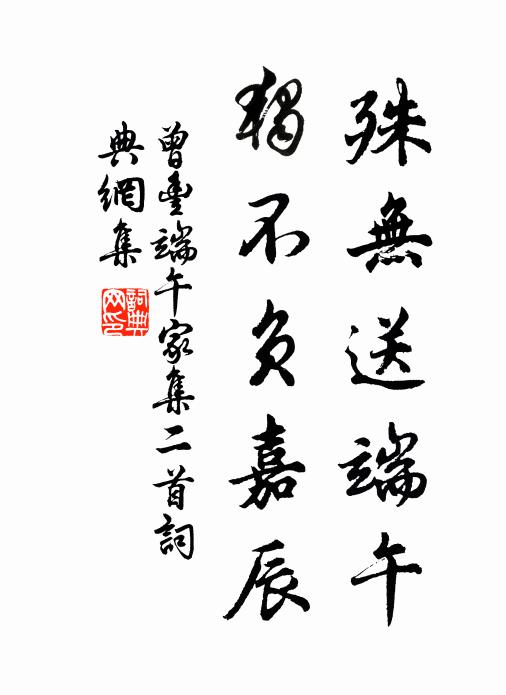 殊無送端午
獨不負嘉辰
曾豐端午家集二首詞
典網集
詞典
网印